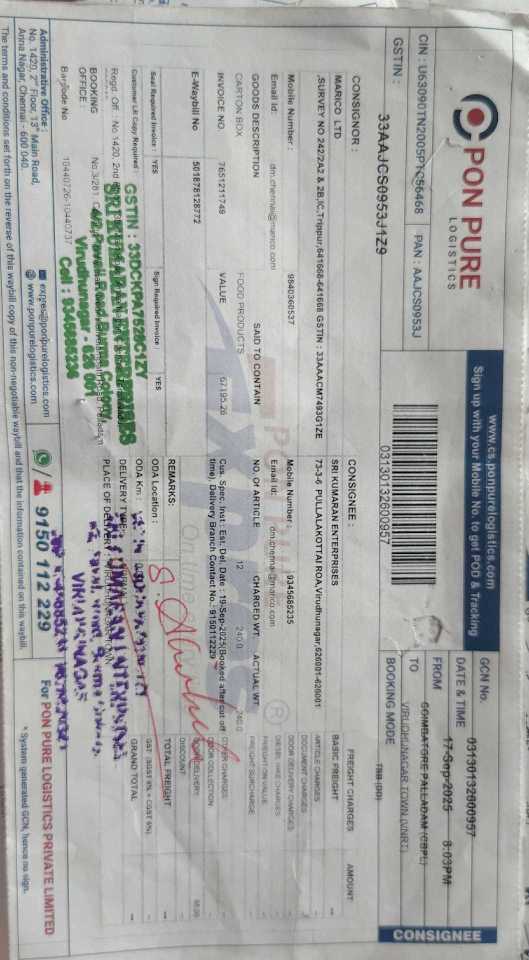 PON PURE
LOGISTICS
www.cs.ponpurelogistics.com
Sign up with your Mobile No. to get POD & Tracking
CIN : U63090TN2005PTC56468
PAN : AAJCS0953J
GSTIN : 33AAJCS0953J1Z9
03130132600957
GCN No. 03130132600957
DATE & TIME 17-Sep-2025 8:03PM
FROM COIMBATORE PALLADAM (CBPL)
TO VIRUDHUNAGAR TOWN (VNRT)
BOOKING MODE TBB (DD)
CONSIGNEE
CONSIGNOR :
MARICO LTD
,SURVEY NO 242/2A2 & 2B,IC,Trippur,641668-641668 GSTIN : 33AAACM7493G1ZE
Mobile Number : 9840360537
Email Id: dm.chennai@marico.com
CONSIGNEE :
SRI KUMARAN ENTERPRISES
73-3-6 PULLALAKOTTAI ROA,Virudhunagar,626001-626001
Mobile Number : 9345685235
Email Id: dm.chennai@marico.com
GOODS DESCRIPTION SAID TO CONTAIN NO. OF ARTICLE CHARGED WT. ACTUAL WT.
CARTON BOX FOOD PRODUCTS 12 240.0 240.0
INVOICE NO. 7651211749 VALUE 67195.26
E-Waybill No 501878128772
Cus. Spec. Inst.: Est. Del. Date :19-Sep-2025(Booked after cut off
time). Delivery Branch Contact No.:9150112229
Seal Required Invoice : YES
Sign Required Invoice : YES
Customer LR Copy Required :
REMARKS:
ODA Location :
ODA Km :
DELIVERY TYPE :
PLACE OF DELIVERY :
FREIGHT CHARGES AMOUNT
BASIC FREIGHT --
ARTICLE CHARGES
DOCUMENT CHARGES
DOOR DELIVERY CHARGES
DIESEL HIKE CHARGES
FREIGHT ON VALUE
FREIGHT SURCHARGE
OTHER CHARGES
DOOR COLLECTION
DOOR DELIVERY
DISCOUNT
TOTAL FREIGHT --
GST (SGST 6% + CGST 6%) --
GRAND TOTAL --
Regd. Off : No.1420, 2nd
BOOKING
OFFICE :
No.3/281
Barcode No 10440726-10440737
GSTIN : 33DCKPA7529C1ZY
SRI KUMARAN ENTERPRISES
Virudhunagar - 626 001
Cell : 9345685235
VIRUDHUNAGAR
Administrative Office :
No. 1420, 2nd Floor, 13th Main Road,
Anna Nagar, Chennai - 600 040.
express@ponpurelogistics.com
www.ponpurelogistics.com
9150 112 229
For PON PURE LOGISTICS PRIVATE LIMITED
* System generated GCN, hence no sign.
The terms and conditions set forth on the reverse of this waybill copy of this non-negotiable waybill and that the information contained on this waybill.